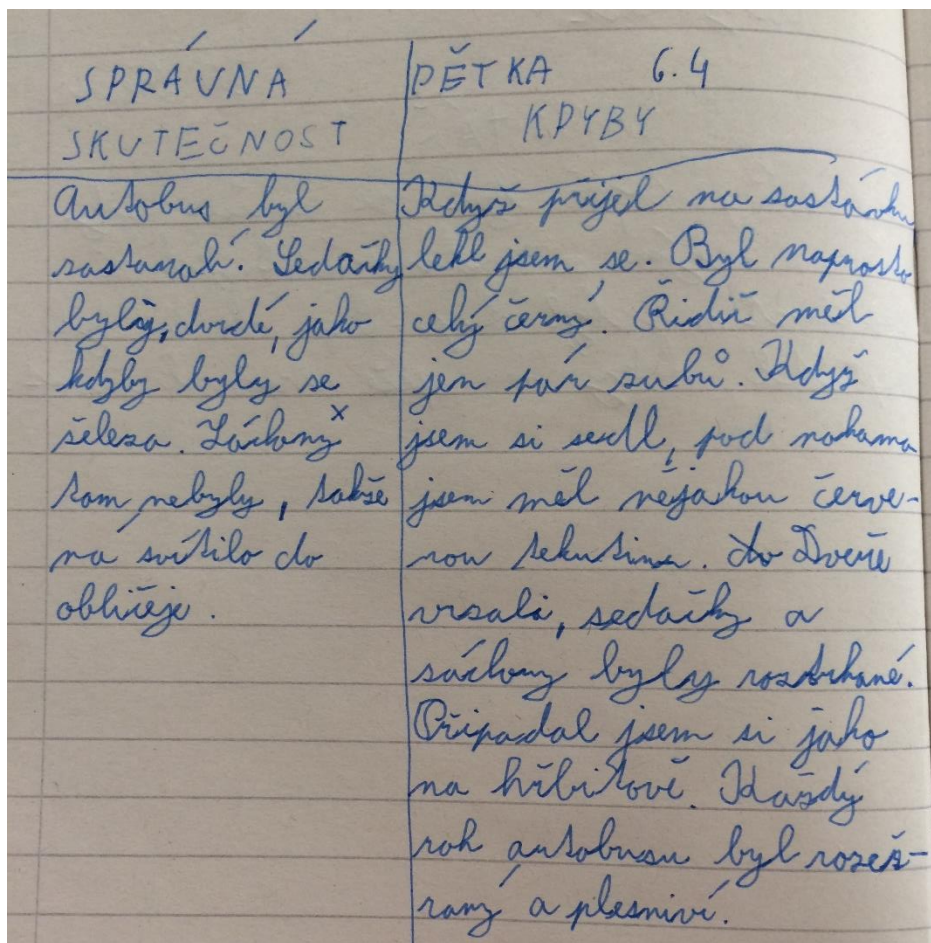 SPRÁVNÁ
SKUTEČNOST
Autobus byl
zastaralí. Sedačky
byly, tvrdé, jako
kdyby byly ze
železa. Záclony
tam nebyly, takže
ná svítilo do
obličeje.
PĚTKA 6.4
KDYBY
Když přijel na zastávku
lekl jsem se. Byl naprosto
celý černý. Řidič měl
jen pár zubů. Když
jsem si sedl, pod nohama
jsem měl nějakou červe-
nou tekutinu. Dveře
vrzali, sedačky a
záclony byly roztrhané.
Připadal jsem si jako
na hřbitově. Každý
roh autobusu byl rozež-
raný a plesniví.